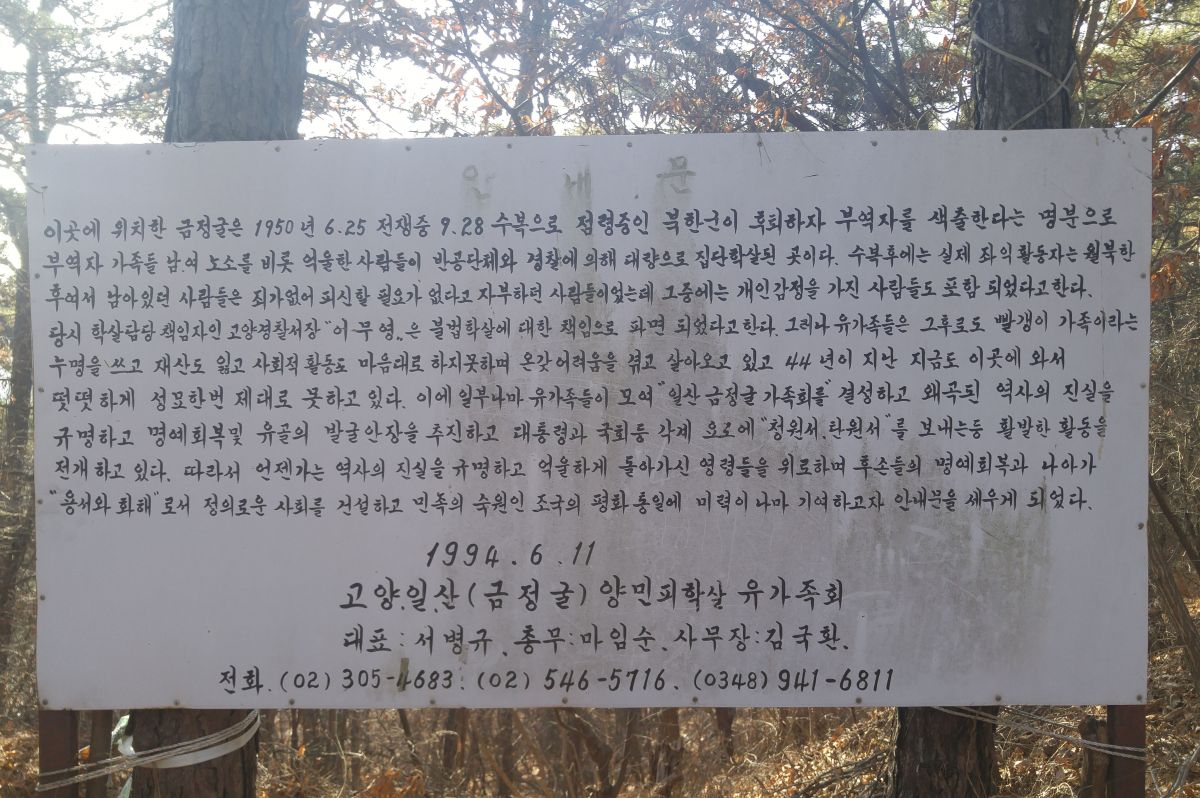 안내문
이곳에 위치한 금정굴은 1950년 6.25 전쟁중 9.28 수복으로 점령중인 북한군이 후퇴하자 부역자를 색출한다는 명분으로
부역자 가족들 남여 노소를 비롯 억울한 사람들이 반공단체와 경찰에 의해 대량으로 집단학살된 곳이다. 수복후에는 실제 좌익활동자는 월북한
후여서 남아있던 사람들은 죄가없어 피신할 필요가 없다고 자부하던 사람들이었는데 그중에는 개인감정을 가진 사람들도 포함 되었다고한다.
당시 학살담당 책임자인 고양경찰서장 "이무영"은 불법학살에 대한 책임으로 파면 되었다고한다. 그러나 유가족들은 그후로도 빨갱이 가족이라는
누명을 쓰고 재산도 잃고 사회적 활동도 마음대로 하지못하며 온갖어려움을 겪고 살아오고 있고 44년이 지난 지금도 이곳에 와서
떳떳하게 성묘한번 제대로 못하고 있다. 이에 일부나마 유가족들이 모여 "일산 금정굴 가족회를" 결성하고 왜곡된 역사의 진실을
규명하고 명예회복및 유골의 발굴안장을 추진하고 대통령과 국회등 각계 요로에 "청원서.탄원서"를 보내는등 활발한 활동을
전개하고 있다. 따라서 언젠가는 역사의 진실을 규명하고 억울하게 돌아가신 영령들을 위로하며 후손들의 명예회복과 나아가
"용서와 화해"로서 정의로운 사회를 건설하고 민족의 숙원인 조국의 평화통일에 미력이나마 기여하고자 안내문을 세우게 되었다.
1994. 6. 11
고양.일산(금정굴) 양민피학살 유가족회
대표:서병규. 총무:마임순. 사무장:김국환.
전화. (02) 305-4683. (02) 546-5716. (0348) 941-6811